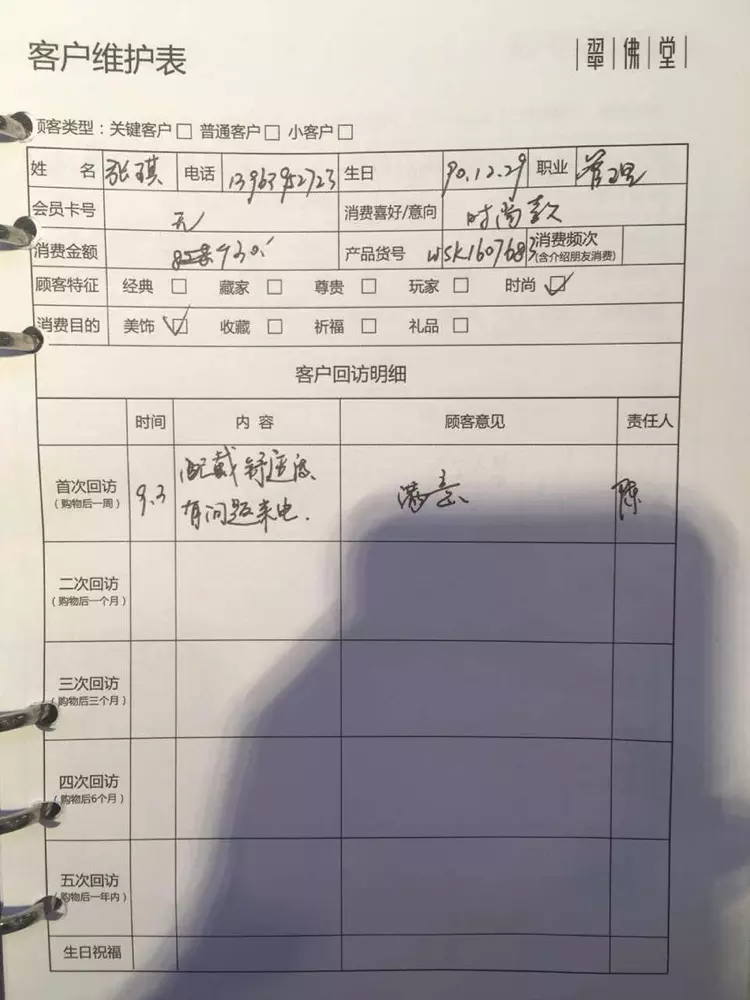 客户维护表
翠佛堂
顾客类型：关键客户□ 普通客户□ 小客户□
姓 名 张琪 电话 13963952723 生日 90.12.29 职业 管理
会员卡号 无 消费喜好/意向 时尚款
消费金额 930 产品货号 WSK160768 消费频次
(含介绍朋友消费)
顾客特征 经典 □ 藏家 □ 尊贵 □ 玩家 □ 时尚 ☑
消费目的 美饰 ☑ 收藏 □ 祈福 □ 礼品 □
客户回访明细
时间 内 容 顾客意见 责任人
首次回访
(购物后一周)
9.3
配戴舒适度
有问题来电.
满意
陈
二次回访
(购物后一个月)
三次回访
(购物后三个月)
四次回访
(购物后6个月)
五次回访
(购物后一年内)
生日祝福